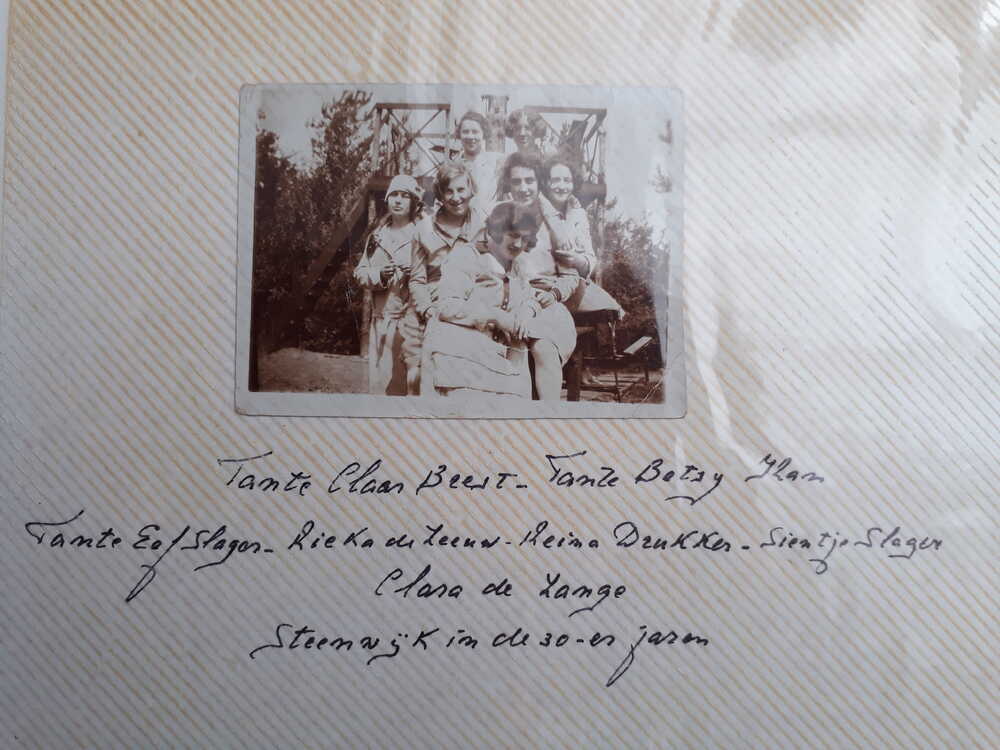 Tante Claar Beest - Tante Betsy Kan
Tante Eef Slager - Rieka de Leeuw - Reina Drukker - Sientje Slager
Clara de Lange
Steenwijk in de 30-er jaren